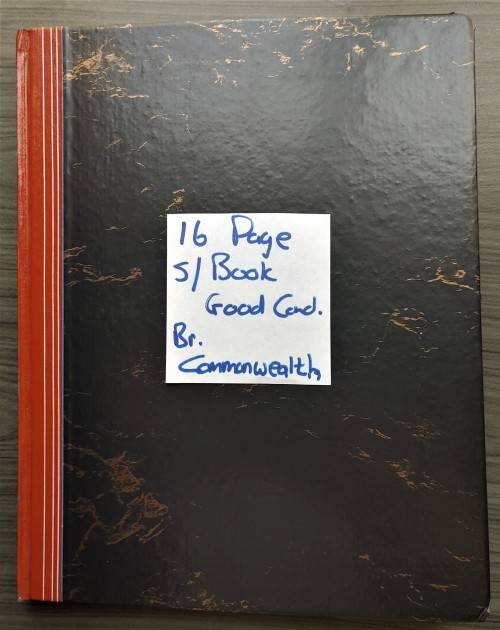 16 Page
S/Book
Good Cond.
Br.
Commonwealth